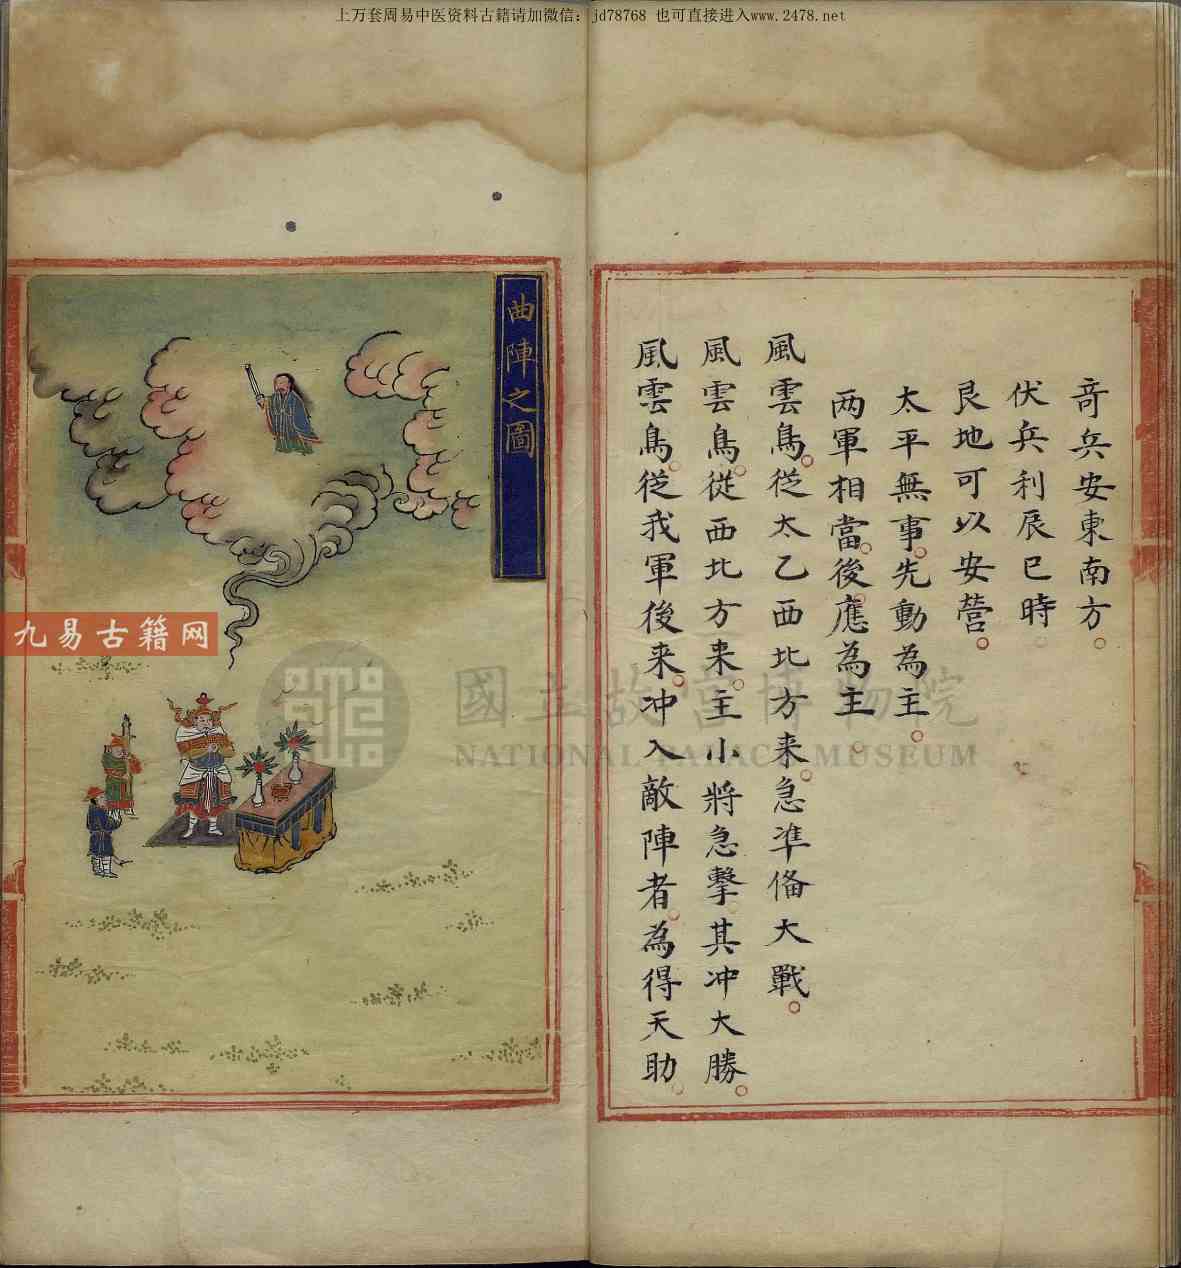 上万套周易中医资料古籍请加微信：jd78768 也可直接进入www.2478.net
竒兵安東南方。
伏兵利辰巳時。
艮地可以安營。
太平無事。先動為主。
两軍相當。後應為主。
風雲鳥。從太乙西北方来。急準俻大戰。
風雲鳥。從西北方来。主小將急擊其冲大勝。
風雲鳥。從我軍後来。冲入敵陣者。為得天助。
曲陣之圖
九易古籍网
國立故宮博物院
NATIONAL PALACE MUSEUM